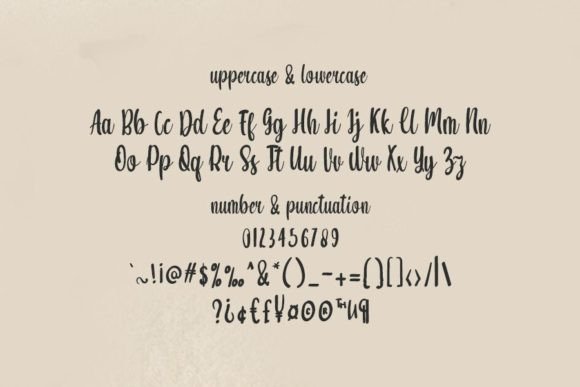 uppercase & lowercase
Aa Bb Cc Dd Ee Ff Gg Hh Ii Jj Kk Ll Mm Nn
Oo Pp Qq Rr Ss Tt Uu Vv Ww Xx Yy Zz
number & punctuation
0123456789
`~!i@#$%‰^&*()_-+={}[]‹›/|\
?¿¢€£¥¤©®™µ¶